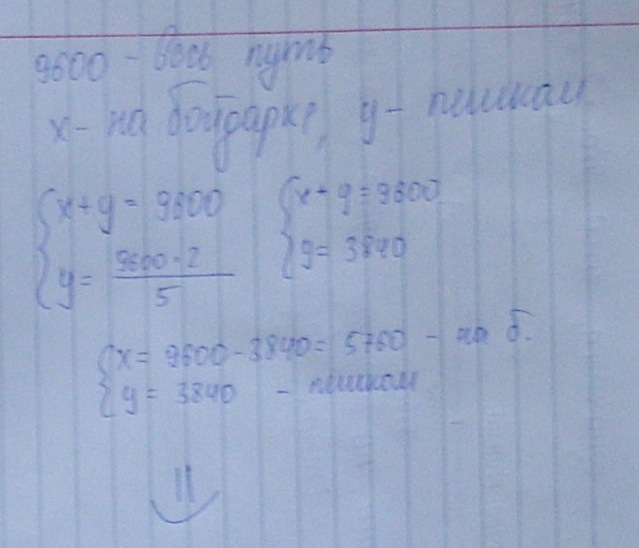 9600 - весь путь
x - на бойдарке, y - пешком
{x + y = 9600 {x + y = 9600
{y = 9600 · 2 / 5 {y = 3840
{x = 9600 - 3840 = 5760 - на б.
{y = 3840 - пешком